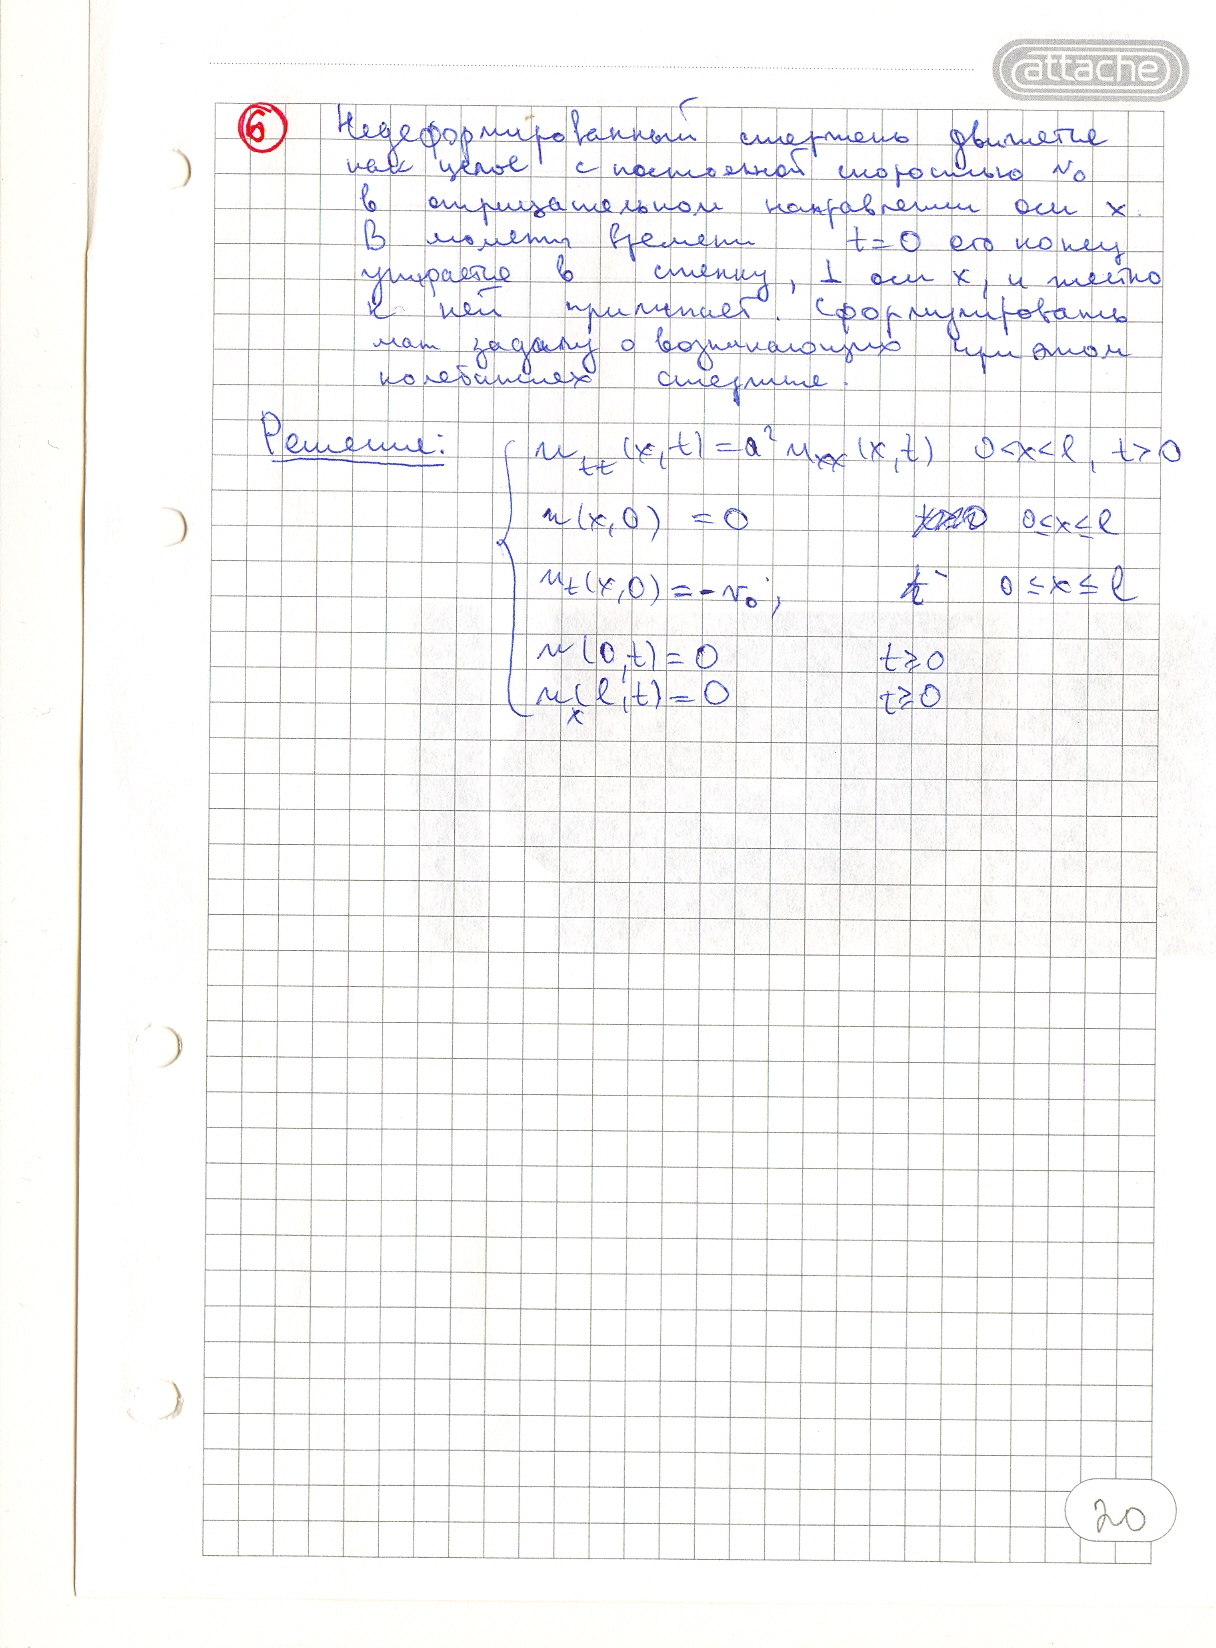 attache
6 Недеформированный стержень движется
как целое с постоянной скоростью v₀
в отрицательном направлении оси x.
В момент времени t=0 его конец
упирается в стенку, ⊥ оси x, и жестко
к ней прилипает. Сформулировать
мат задачу о возникающих при этом
колебаниях стержня.
Решение: u_tt(x,t)=a²u_xx(x,t) 0<x<l, t>0
u(x,0) =0 0≤x≤l
u_t(x,0)=-v₀; 0≤x≤l
u(0,t)=0 t≥0
u_x(l,t)=0 t≥0
20